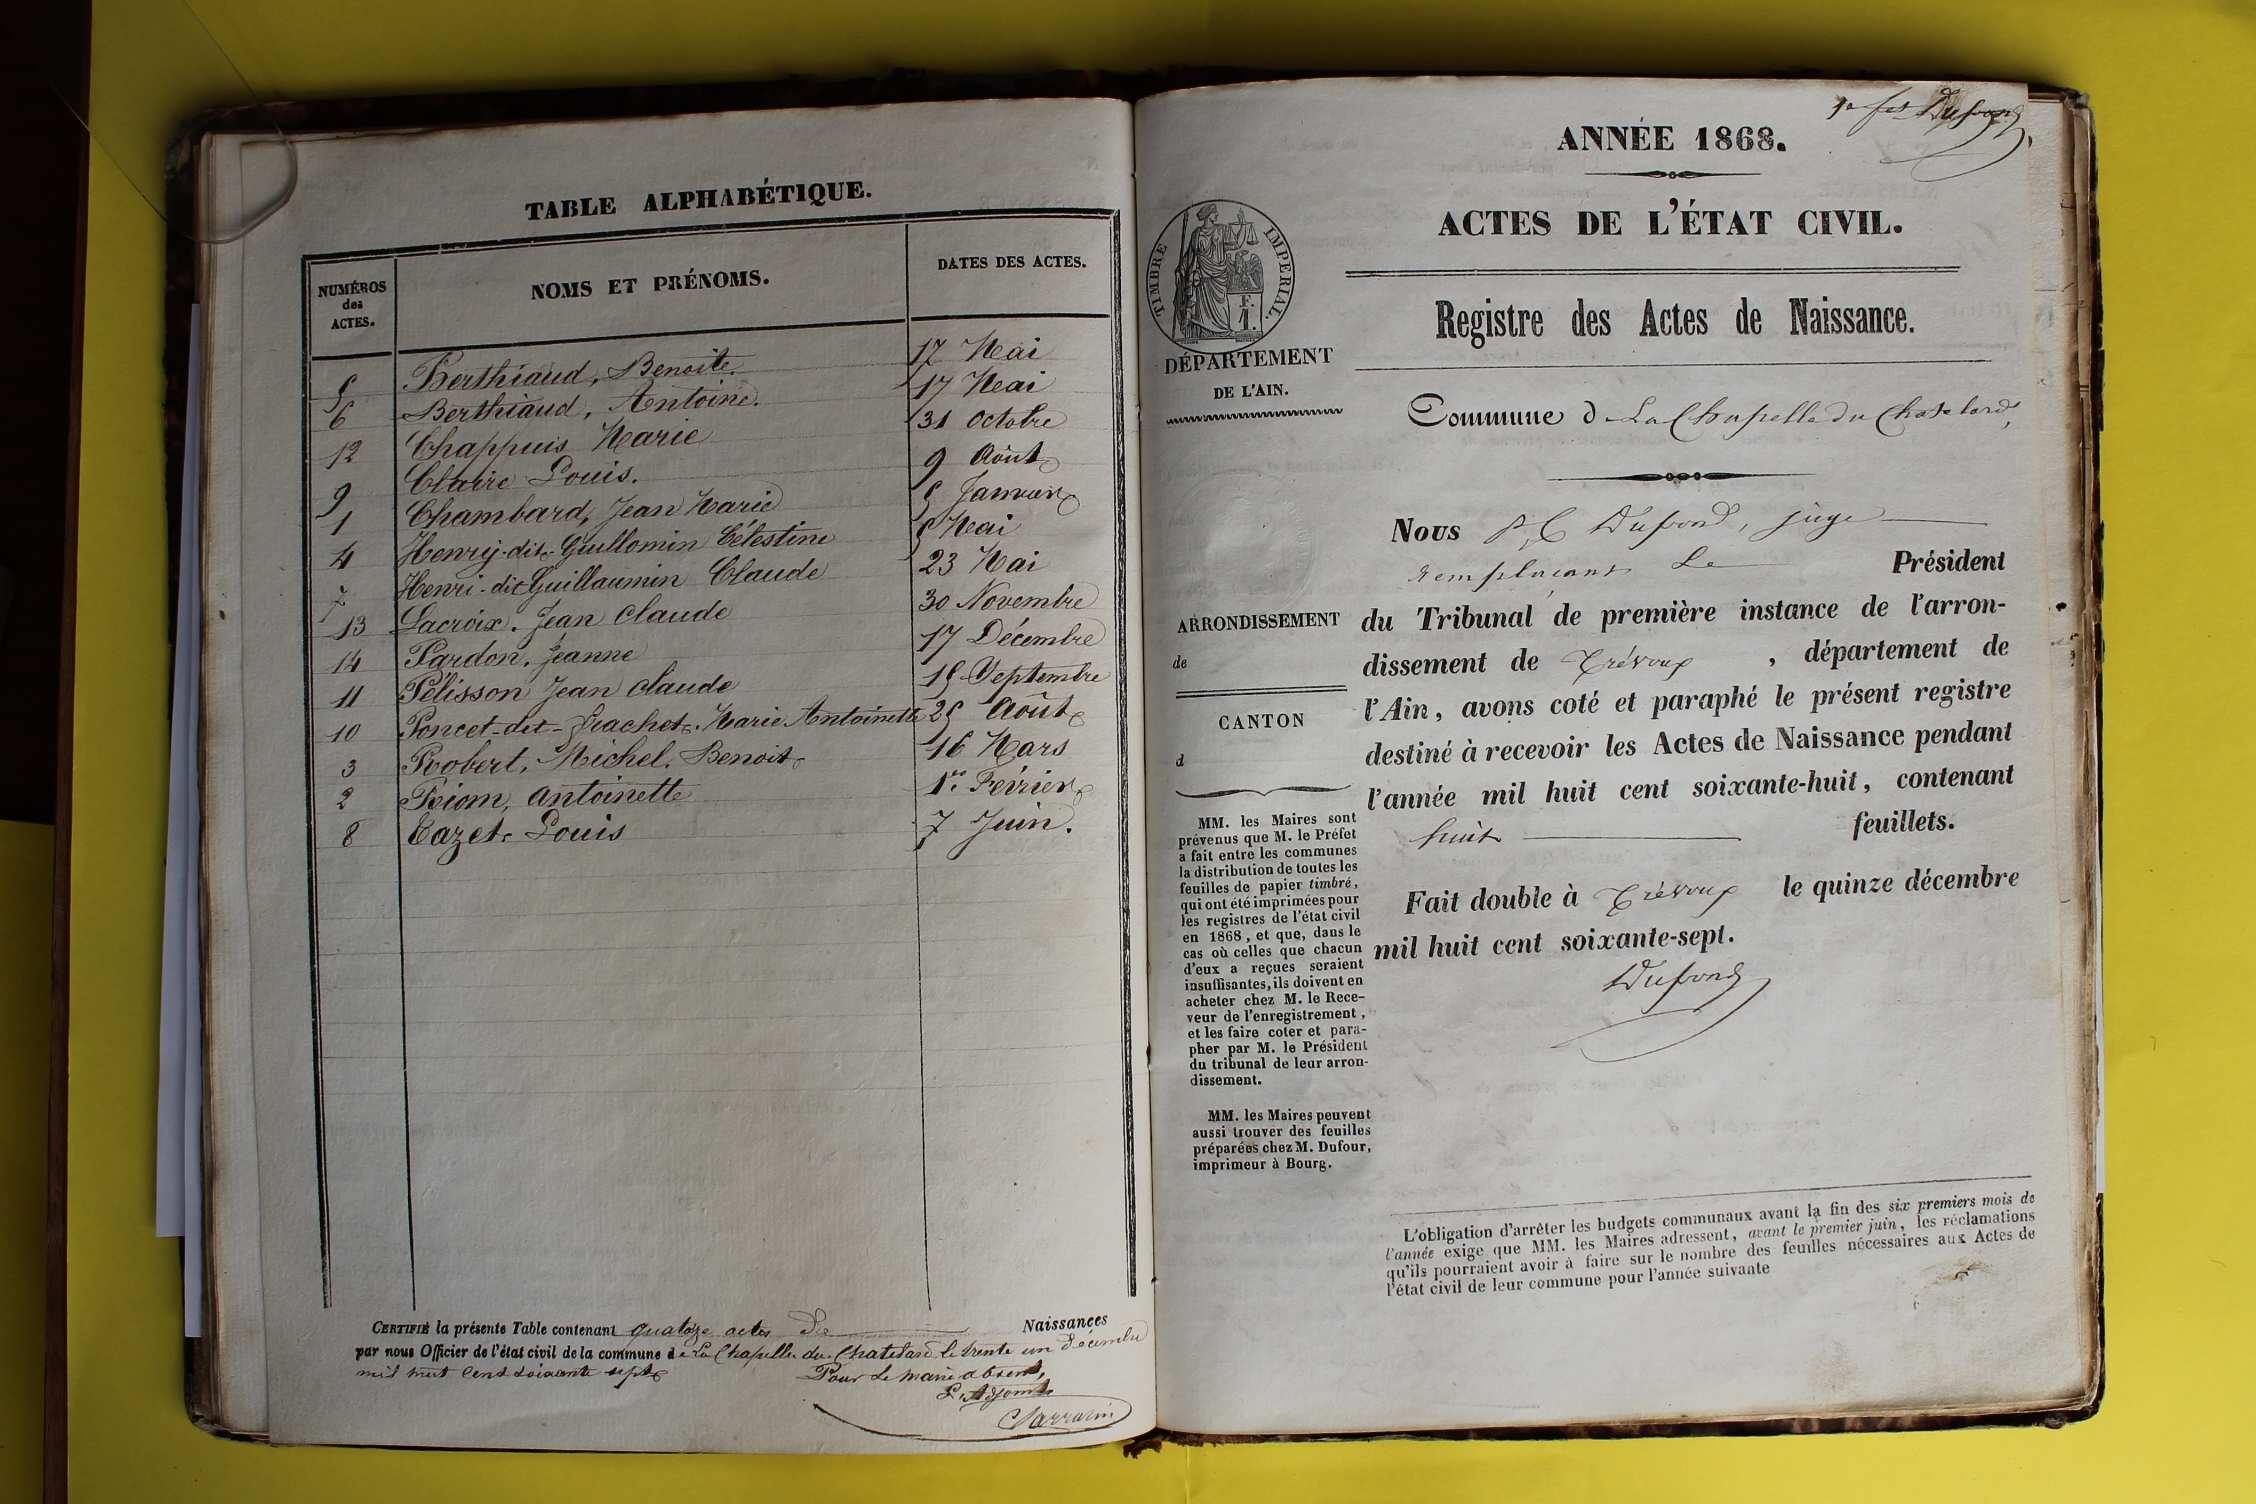 TABLE ALPHABÉTIQUE.
NUMÉROS des ACTES. NOMS ET PRÉNOMS. DATES DES ACTES.
5 Berthiaud, Benoite. 17 Mai
6 Berthiaud, Antoine. 17 Mai
12 Chappuis Marie 31 Octobre
9 Claire Louis. 9 Août
1 Chambard, Jean Marie 5 Janvier
4 Henry-dit-Guillomin Célestine 5 Mai
7 Henri-dit Guillaumin Claude 23 Mai
13 Lacroix. Jean Claude 30 Novembre
14 Pardon. Jeanne 17 Décembre
11 Pélisson Jean Claude 15 Septembre
10 Poncet-dit-Frachet. Marie Antoinette 25 Août
3 Robert, Michel. Benoit 16 Mars
2 Riom, Antoinette 1er Février
8 Tazet Louis 7 Juin.
CERTIFIÉ la présente Table contenant quatoze actes De Naissances
par nous Officier de l'état civil de la commune de La Chapelle du Chatelard le trente un décembre
mil huit cent soixante sept
Pour Le maire absent,
L'Adjoint
Sarrazin
Dufond
ANNÉE 1868.
ACTES DE L'ÉTAT CIVIL.
TIMBRE IMPERIAL.
F. 1.
DÉPARTEMENT
DE L'AIN.
Registre des Actes de Naissance.
Commune de La Chapelle du Chatelard,
Nous Dufond, juge
remplaçant Le Président
du Tribunal de première instance de l'arron-
dissement de Trévoux, département de
l'Ain, avons coté et paraphé le présent registre
destiné à recevoir les Actes de Naissance pendant
l'année mil huit cent soixante-huit, contenant
huit feuillets.
Fait double à Trévoux le quinze décembre
mil huit cent soixante-sept.
Dufond
ARRONDISSEMENT
de
CANTON
d
MM. les Maires sont
prévenus que M. le Préfet
a fait entre les communes
la distribution de toutes les
feuilles de papier timbré,
qui ont été imprimées pour
les registres de l'état civil
en 1868, et que, dans le
cas où celles que chacun
d'eux a reçues seraient
insuffisantes, ils doivent en
acheter chez M. le Rece-
veur de l'enregistrement,
et les faire coter et para-
pher par M. le Président
du tribunal de leur arron-
dissement.
MM. les Maires peuvent
aussi trouver des feuilles
préparées chez M. Dufour,
imprimeur à Bourg.
L'obligation d'arrêter les budgets communaux avant la fin des six premiers mois de
l'année exige que MM. les Maires adressent, avant le premier juin, les réclamations
qu'ils pourraient avoir à faire sur le nombre des feuilles nécessaires aux Actes de
l'état civil de leur commune pour l'année suivante